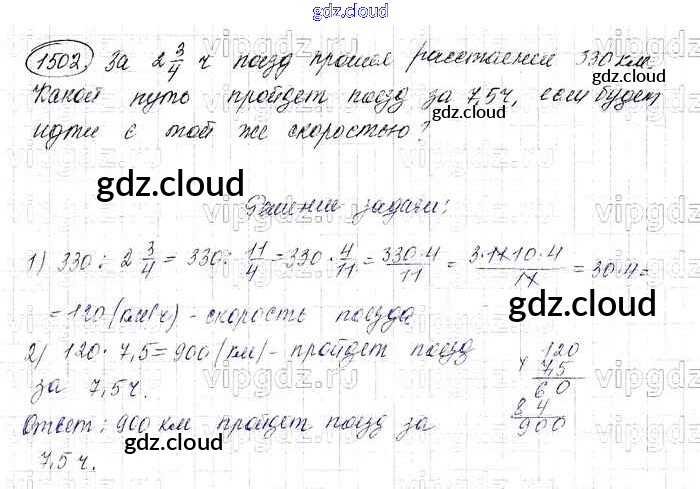 gdz.cloud
1502. За 2 3/4 ч поезд прошел расстояние 330 км.
Какой путь пройдет поезд за 7,5 ч, если будет
идти с той же скоростью?
gdz.cloud
gdz.cloud
Решение задачи:
1) 330 : 2 3/4 = 330 : 11/4 = 330 · 4/11 = 330·4/11 = 3·11·10·4/11 = 30·4 =
gdz.cloud
= 120 (км/ч) - скорость поезда
2) 120 · 7,5 = 900 (км) - пройдет поезд
за 7,5 ч.
120
7,5
60
84
900
gdz.cloud
Ответ: 900 км пройдет поезд за
7,5 ч.
gdz.cloud
gdz.cloud